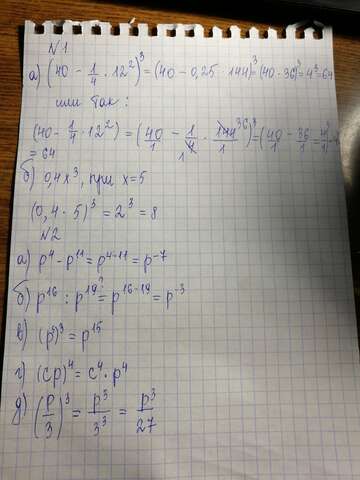 N1
а) (40 - 1/4 · 12²)³ = (40 - 0,25 · 144)³ = (40 - 36)³ = 4³ = 64
или так:
(40 - 1/4 · 12²) = (40/1 - 1/4 · 144/1 36)³ = (40/1 - 36/1 = 4/1)³
= 64
б) 0,4x³, при x = 5
(0,4 · 5)³ = 2³ = 8
N2
а) p⁴ - p¹¹ = p⁴⁻¹¹ = p⁻⁷
б) p¹⁶ : p¹⁹ = p¹⁶⁻¹⁹ = p⁻³
в) (p⁵)³ = p¹⁵
г) (cp)⁴ = c⁴ · p⁴
д) (p/3)³ = p³/3³ = p³/27